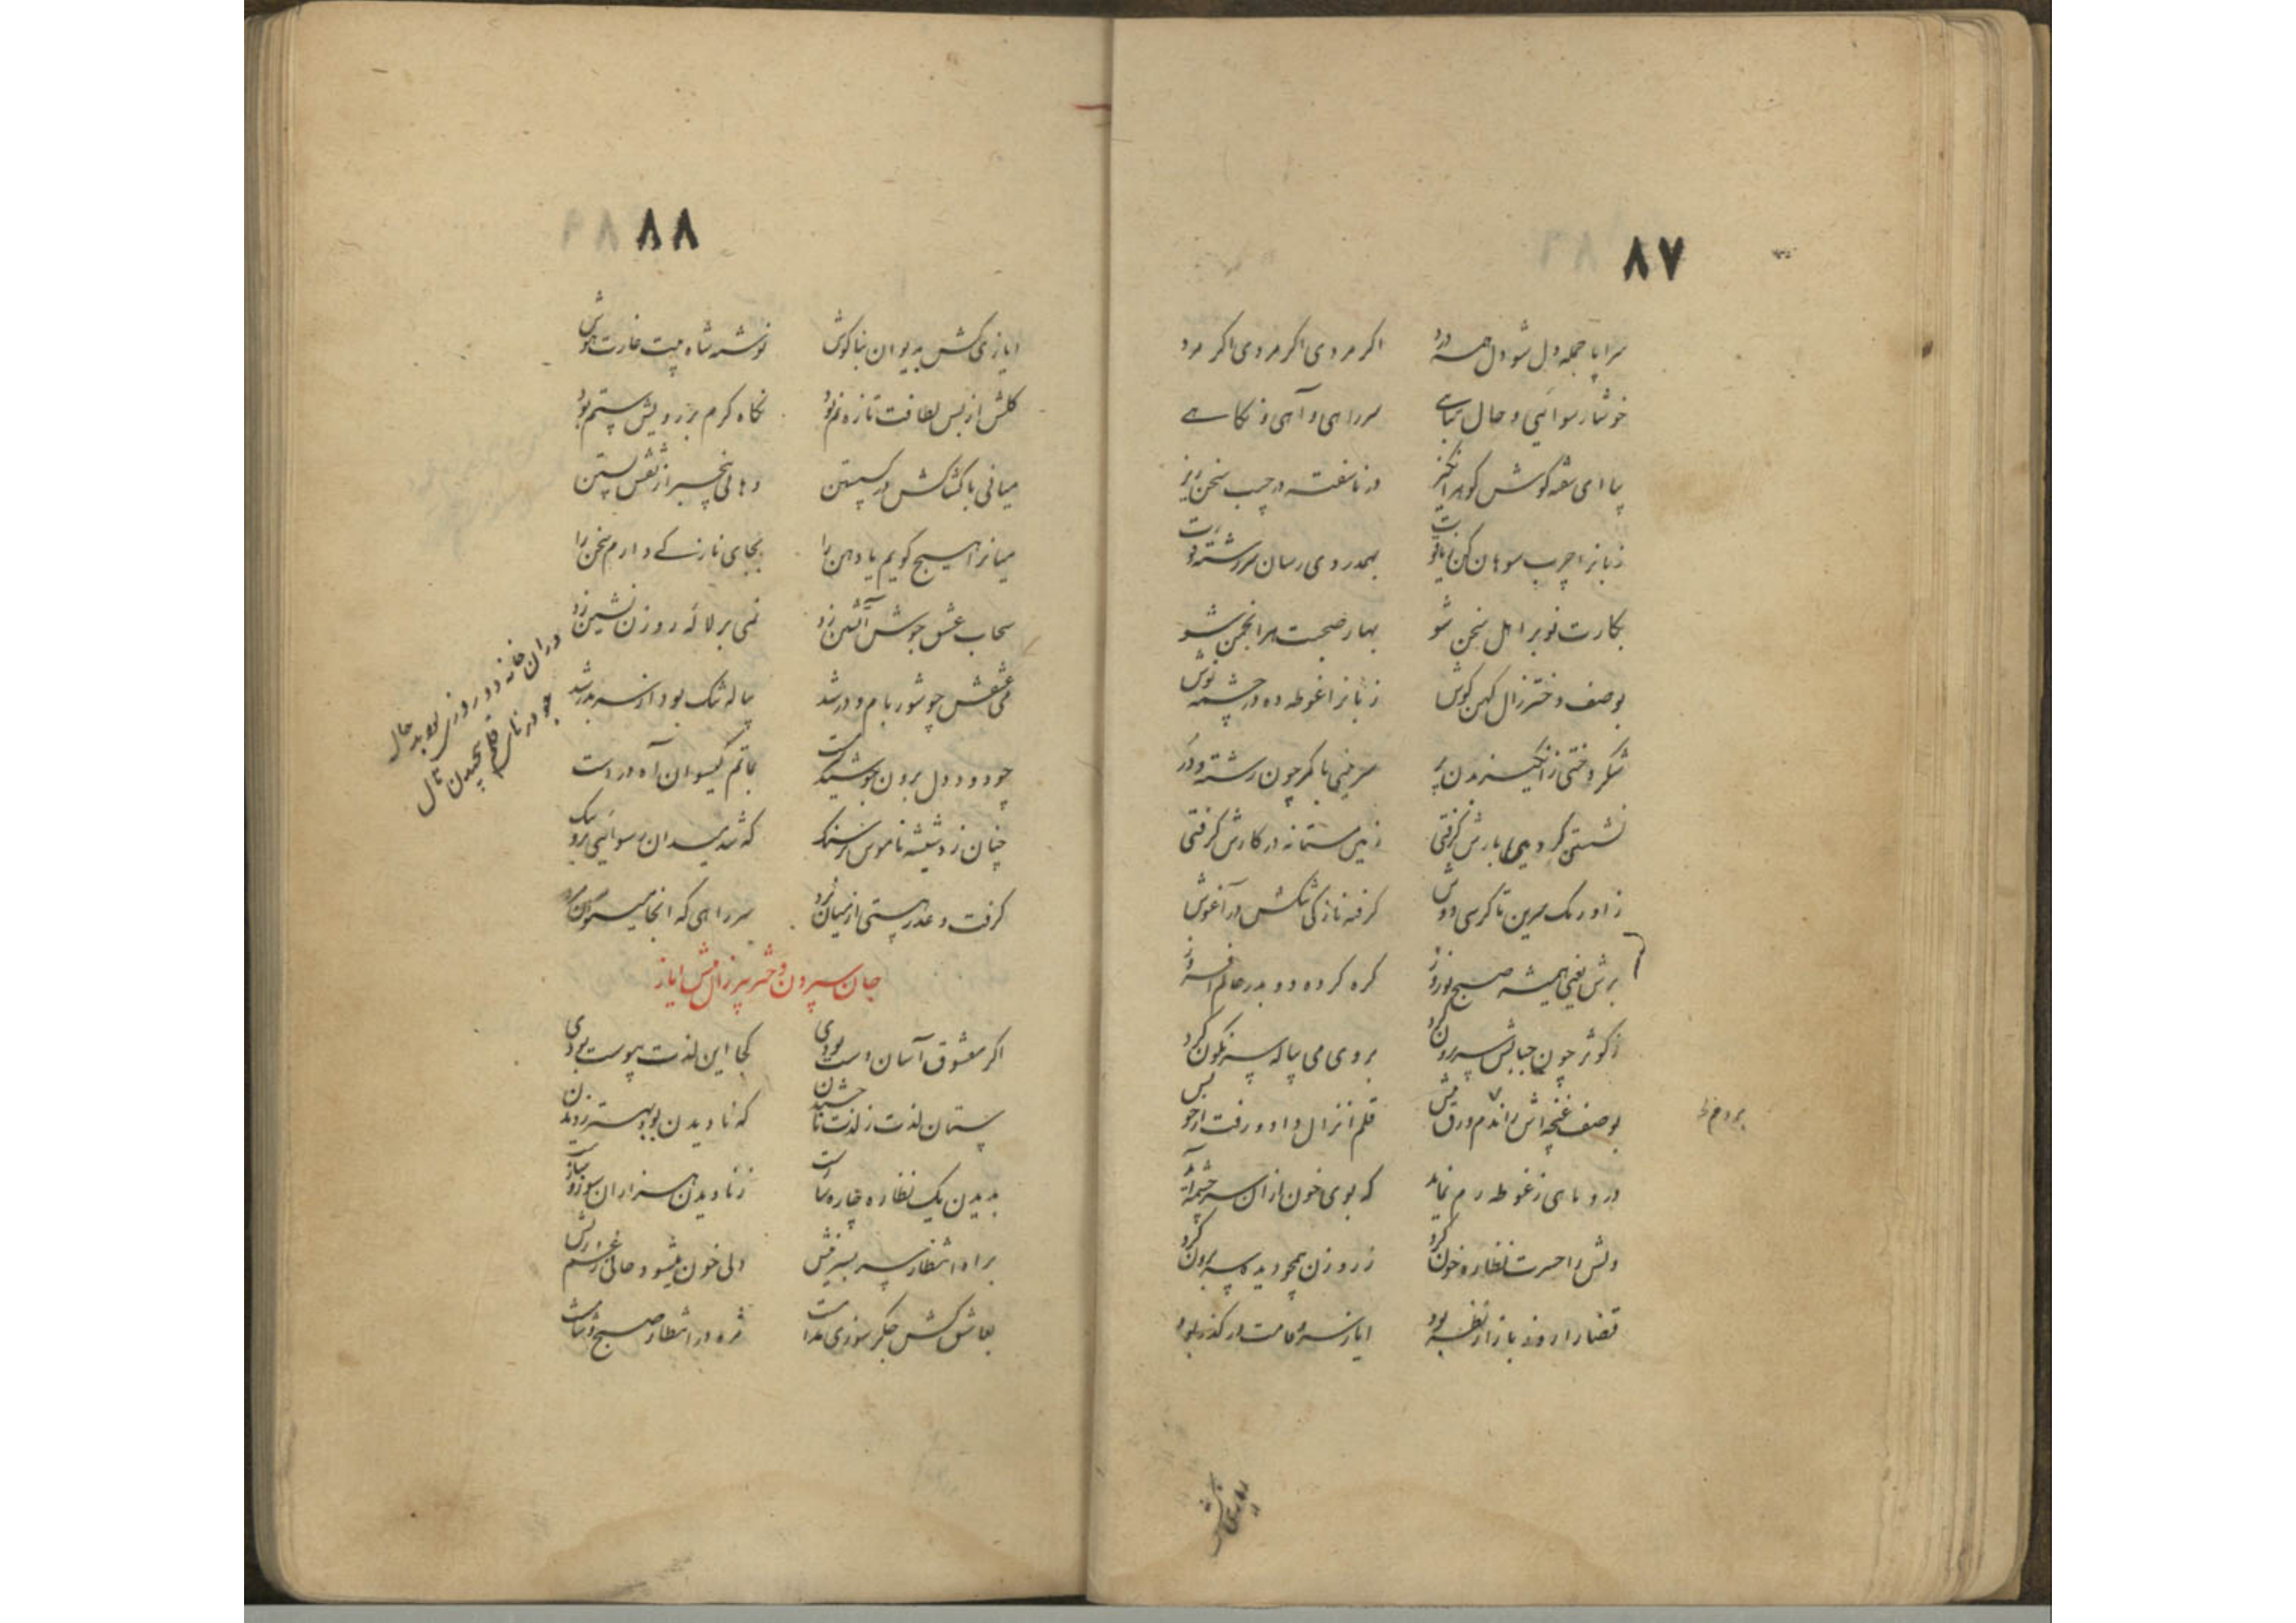 ۸۷
سراپا جمله دل شو دل همه درد اگر مردی اگر مردی اگر مرد
خوشا رسوائیی و حال تباهی سر راهی و آهی و نگاهے
بیا ای شعله گوش گوهر انگیز در ناسفته در جیب سخن ریز
زبانرا چرب سوهان کن یاقوت بهمدردی رسان سررشته قوت
بکارت نوبر اهل سخن شو بهار صحبت هر انجمن شو
بوصف دختر زال کهن کوش زبانرا غوطه ده در چشمه نوش
شکر دختی زانگیز بدن پر سرینی با کمر چون رشته و در
نشستی گر دمی بارش گرفتی زمین مستانه در کارش گرفتی
ز اورنگ سرین تا کرسی دوش گرفته نازکی تنگش در آغوش
برش یعنی همیشه صبح نوروز گره کرده دو بدر عالم افروز
ز کوثر چون حبابش سر برون کرد بروی می پیاله سرنگون کرد
بوصف غنچه اش راندم ورق پیش قلم انزال داد و رفت از خویش
درو ماهی ز غوطه رم نماید که بوی خون ازان سرچشمه آید
دلش را حسرت نظاره خون کرد ز روزن همچو دیده سر برون کرد
قضا را روز بازار نظر بود ایاز سرو قامت در گذر بود
ایازی کش
۸۸
ایازی کش بدیوان بناگوش نوشته شاه بیت غارت هوش
گلش از بس لطافت تازه نم بود نگاه گرم بر رویش ستم بود
میانی با کشاکش در گسستن دهانی بیخبر از نقش بستن
میانرا هیچ گویم یا دهن را بجای نازکے دارم سخن را
سحاب عشق جوش آتشین زد نمی بر لاله روزن نشین زد
می عشقش چو شور بام و در شد پیاله تنگ بود از سر بدر شد
چو دود دل برون جوشید بماتم گیسوان آه در دست
چنان زد شیشه ناموس بر سنگ که شد میدان رسوائیی برو تنگ
گرفت و عذر مستی از میان زد سر راهی که آنجا
دران خانه دو روزی بود بد حال
چو در نال قلم پیچیدن نال
جان سپردن دختر پیر زال پیش ایاز
اگر معشوق آسان دست بودی کجا این لذت پیوست بودی
که نادیدن بود بهتر ز دیدن
بدیدن یک نظاره چاره ساز است ز نادیدن هزاران سوز و ساز است
براه انتظار سر بسر نیش دلی خون میشود
بعاشق کش جگر سوزی مدام است مژه در انتظار صبح و شام است